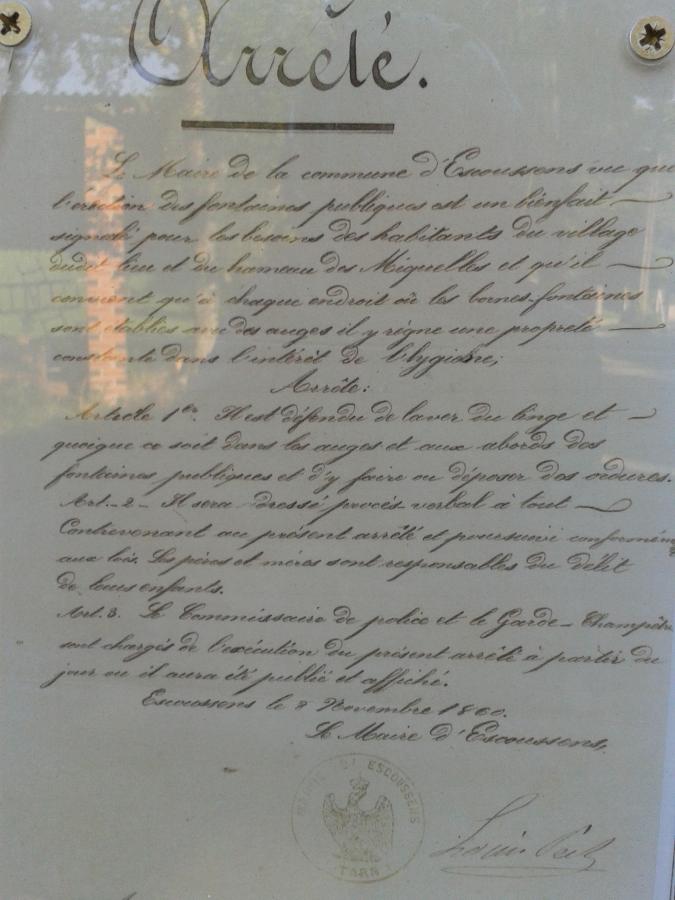 Arrêté.
Le Maire de la commune d'Escoussens vu que
l'érection des fontaines publiques est un bienfait
signalé pour les besoins des habitants du village
dudit lieu et du hameau des Miquelles et qu'il
convient qu'à chaque endroit où les bornes-fontaines
sont établies avec des auges il y règne une propreté
constante dans l'intérêt de l'hygiène;
Arrête:
Article 1er. Il est défendu de laver du linge et
quoique ce soit dans les auges et aux abords des
fontaines publiques et d'y faire ou déposer des ordures.
Art. 2 - Il sera dressé procès verbal à tout
Contrevenant au présent arrêté et poursuivi conformém
aux lois. Les pères et mères sont responsables du délit
de leurs enfants.
Art. 3. Le Commissaire de police et le Garde-Champêtre
sont chargés de l'exécution du présent arrêté à partir du
jour ou il aura été publié et affiché.
Escoussens le 8 Novembre 1860.
Le Maire d'Escoussens,
MAIRIE D'ESCOUSSENS
TARN
Louis